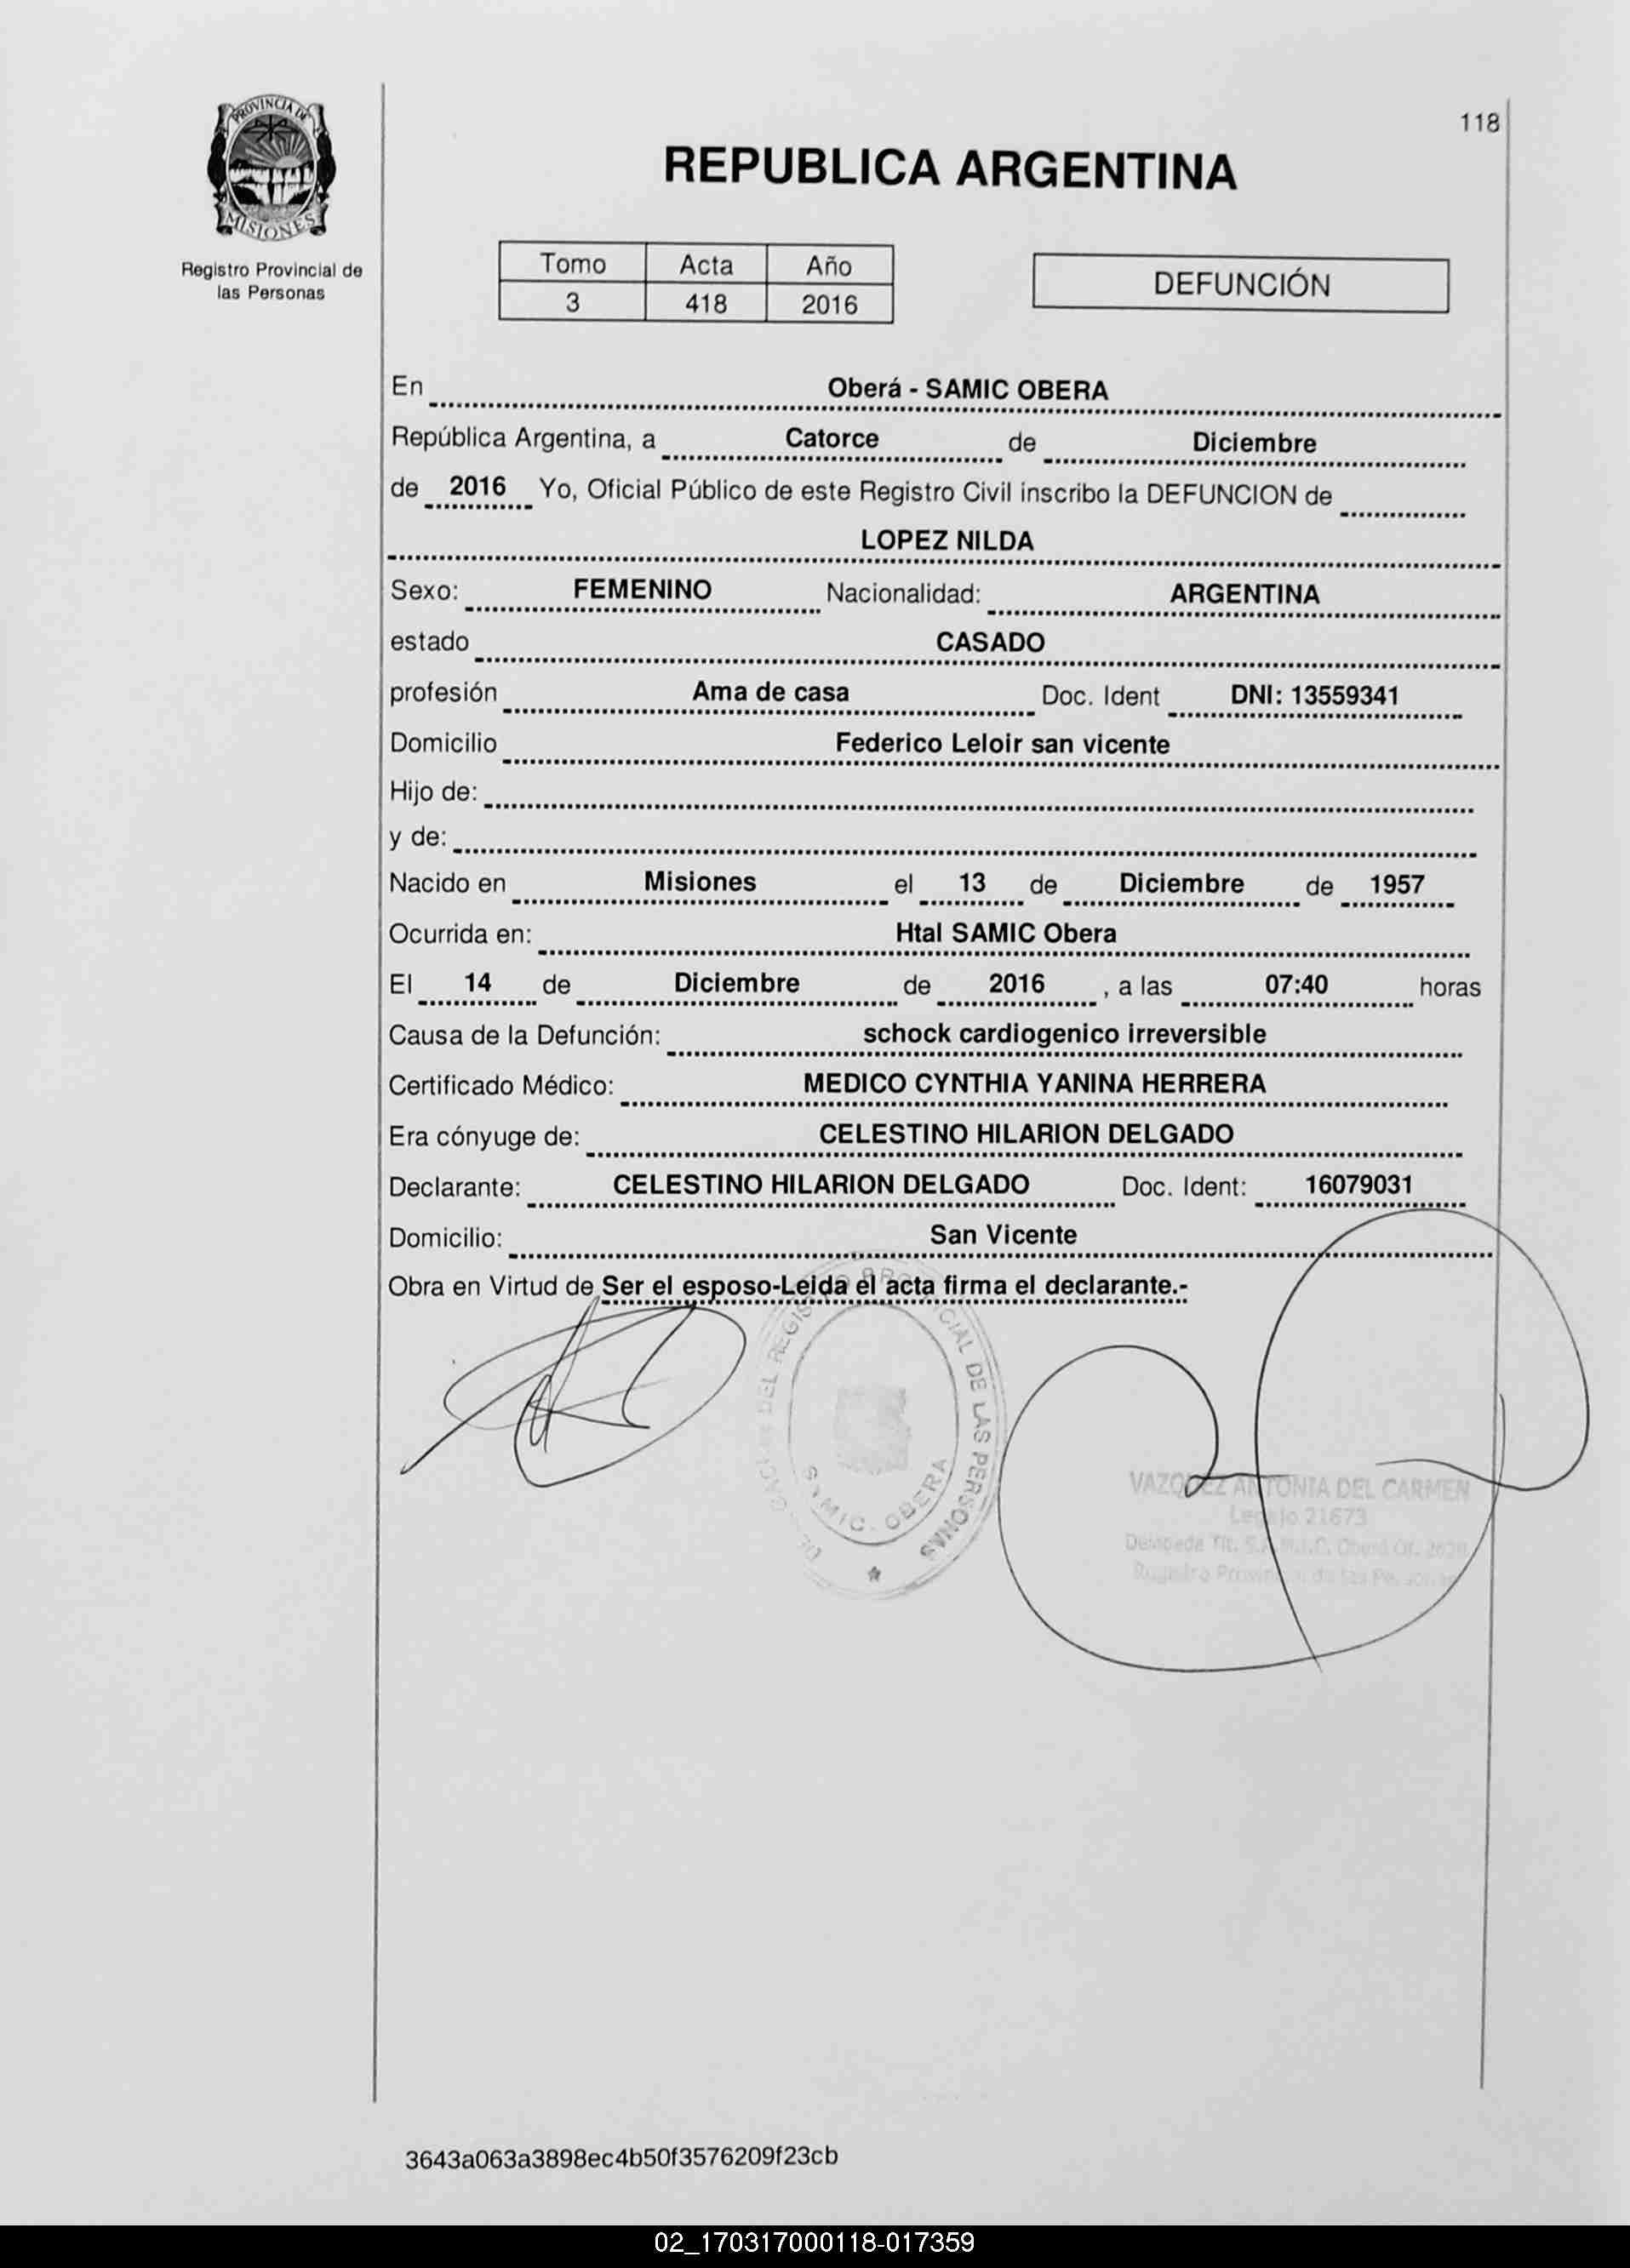 PROVINCIA DE
MISIONES
Registro Provincial de
las Personas
118
REPUBLICA ARGENTINA
Tomo Acta Año
3 418 2016
DEFUNCIÓN
En Oberá - SAMIC OBERA
República Argentina, a Catorce de Diciembre
de 2016 Yo, Oficial Público de este Registro Civil inscribo la DEFUNCION de
LOPEZ NILDA
Sexo: FEMENINO Nacionalidad: ARGENTINA
estado CASADO
profesión Ama de casa Doc. Ident DNI: 13559341
Domicilio Federico Leloir san vicente
Hijo de:
y de:
Nacido en Misiones el 13 de Diciembre de 1957
Ocurrida en: Htal SAMIC Obera
El 14 de Diciembre de 2016 , a las 07:40 horas
Causa de la Defunción: schock cardiogenico irreversible
Certificado Médico: MEDICO CYNTHIA YANINA HERRERA
Era cónyuge de: CELESTINO HILARION DELGADO
Declarante: CELESTINO HILARION DELGADO Doc. Ident: 16079031
Domicilio: San Vicente
Obra en Virtud de Ser el esposo-Leida el acta firma el declarante.-
DEL REGISTRO PROVINCIAL DE LAS PERSONAS
OBERA
VAZQUEZ ANTONIA DEL CARMEN
Legajo 21673
3643a063a3898ec4b50f3576209f23cb
02_170317000118-017359